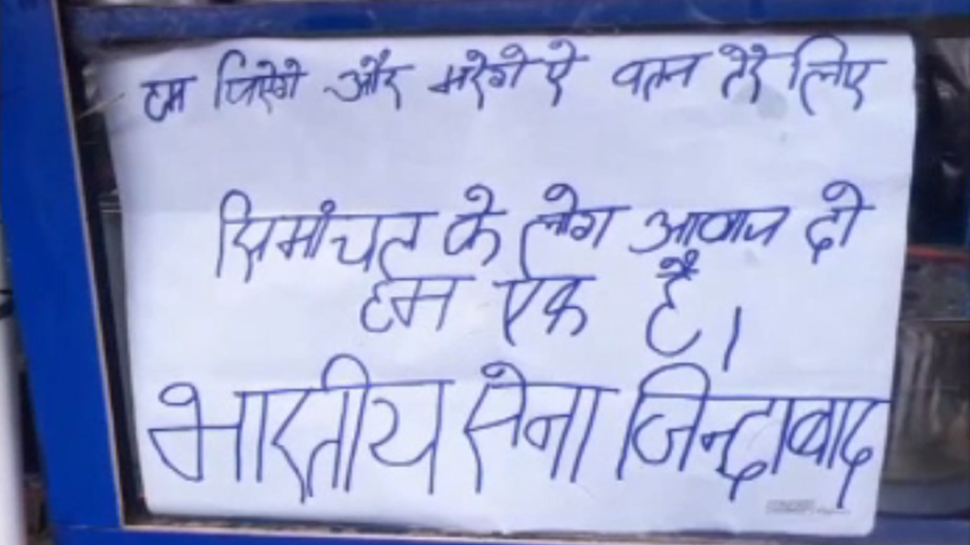 हम जिऐगे और मरेगे ऐ वतन तेरे लिए
सिमांचल के लोग आवाज दो
हम एक है।
भारतीय सेना जिन्दाबाद